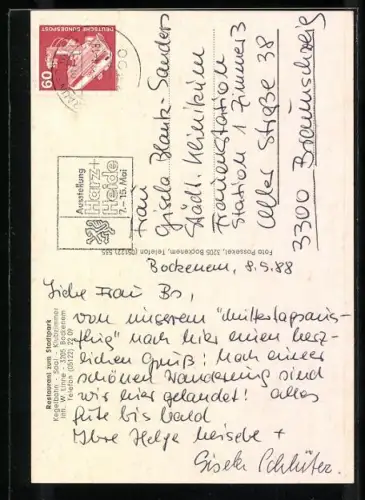 60
DEUTSCHE BUNDESPOST
Ausstellung
Harz +
Heide
7.–15. Mai
Frau
Gisela Blank-Sanders
Städt. Klinikum
Frauenstation
Station 1 Zimmer 3
Celler Straße 38
3300 Braunschweig
Foto Posseket, 3205 Bockenem, Telefon (05122) 555
Restaurant zum Stadtpark
Kegelbahn - Saal - Klubzimmer
Inh. W. Linne · 3205 Bockenem
Telefon (05122) 22 09
Bockenem, 8.5.88
Liebe Frau Bs,
von unserem "Muttertagsaus-
flug" nach hier einen herz-
lichen Gruß! Nach einer
schönen Wanderung sind
wir hier gelandet! alles
Gute bis bald
Ihre Helga +
Gisela Schlüter.